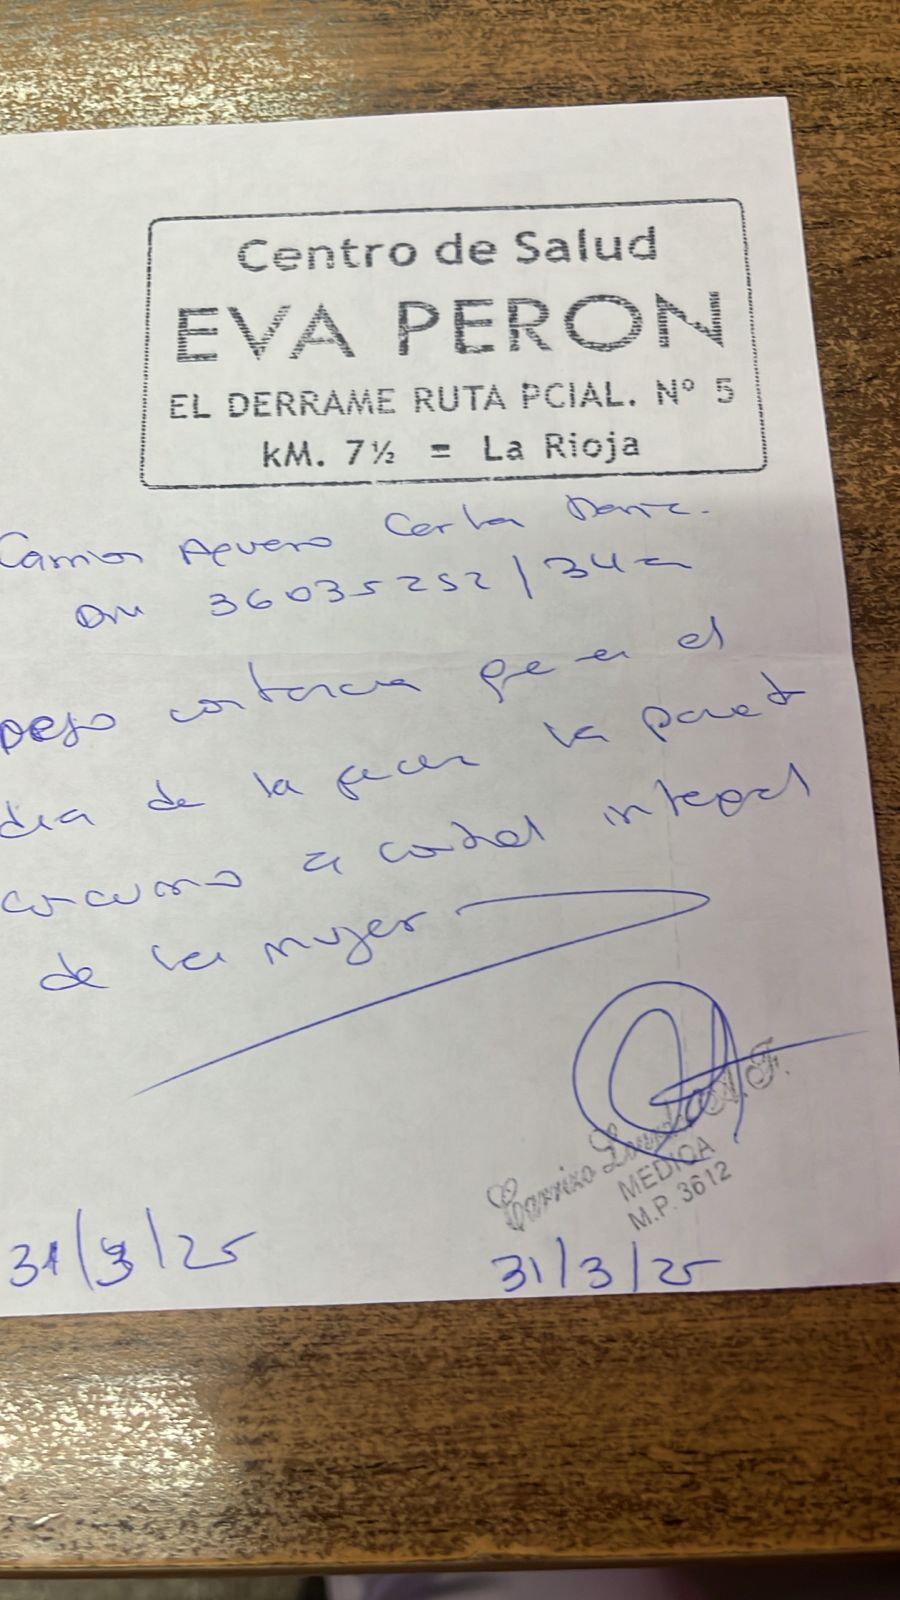 Centro de Salud
EVA PERON
EL DERRAME RUTA PCIAL. Nº 5
kM. 7½ = La Rioja
Carla
36035252/34a
Dejo constancia que en el
dia de la fecha la paciente
concurrio a control integral
de la mujer
Carrizo Lourdes A.F.
MEDICA
M.P. 3612
31/3/25 31/3/25